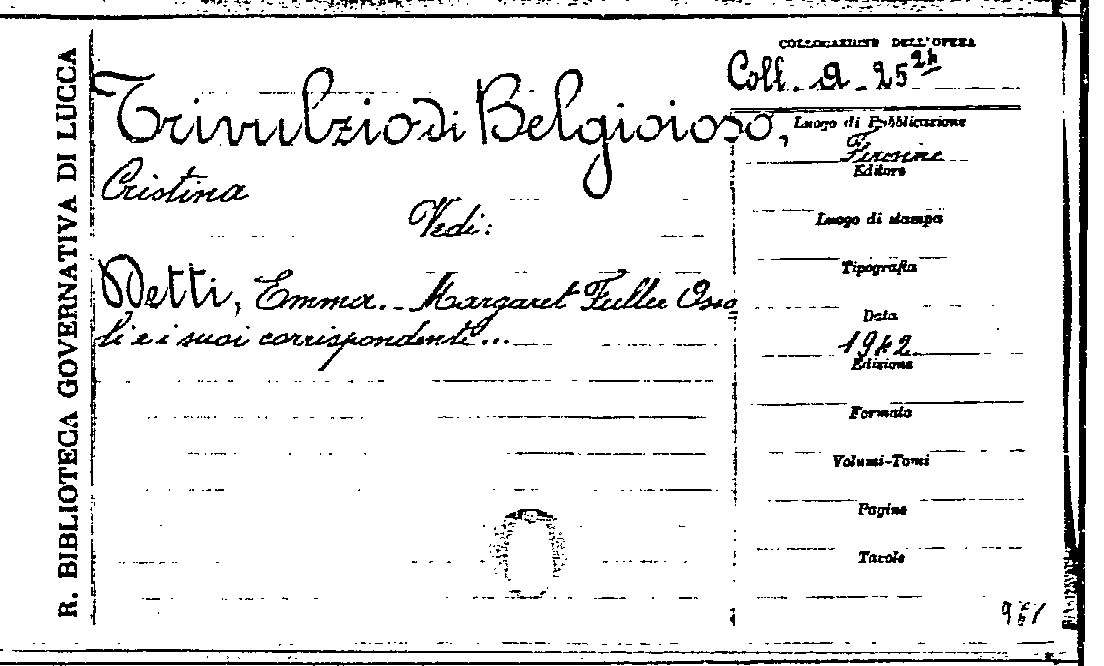 R. BIBLIOTECA GOVERNATIVA DI LUCCA
COLLOCAZIONE DELL'OPERA
Coll. a - 25
Trivulzio di Belgioioso,
Cristina
Vedi:
Detti, Emma. - Margaret Fuller Osso
li e i suoi corrispondenti...
Luogo di Pubblicazione
Firenze
Editore
Luogo di stampa
Tipografia
Data
1942
Edizione
Formato
Volumi-Tomi
Pagine
Tavole